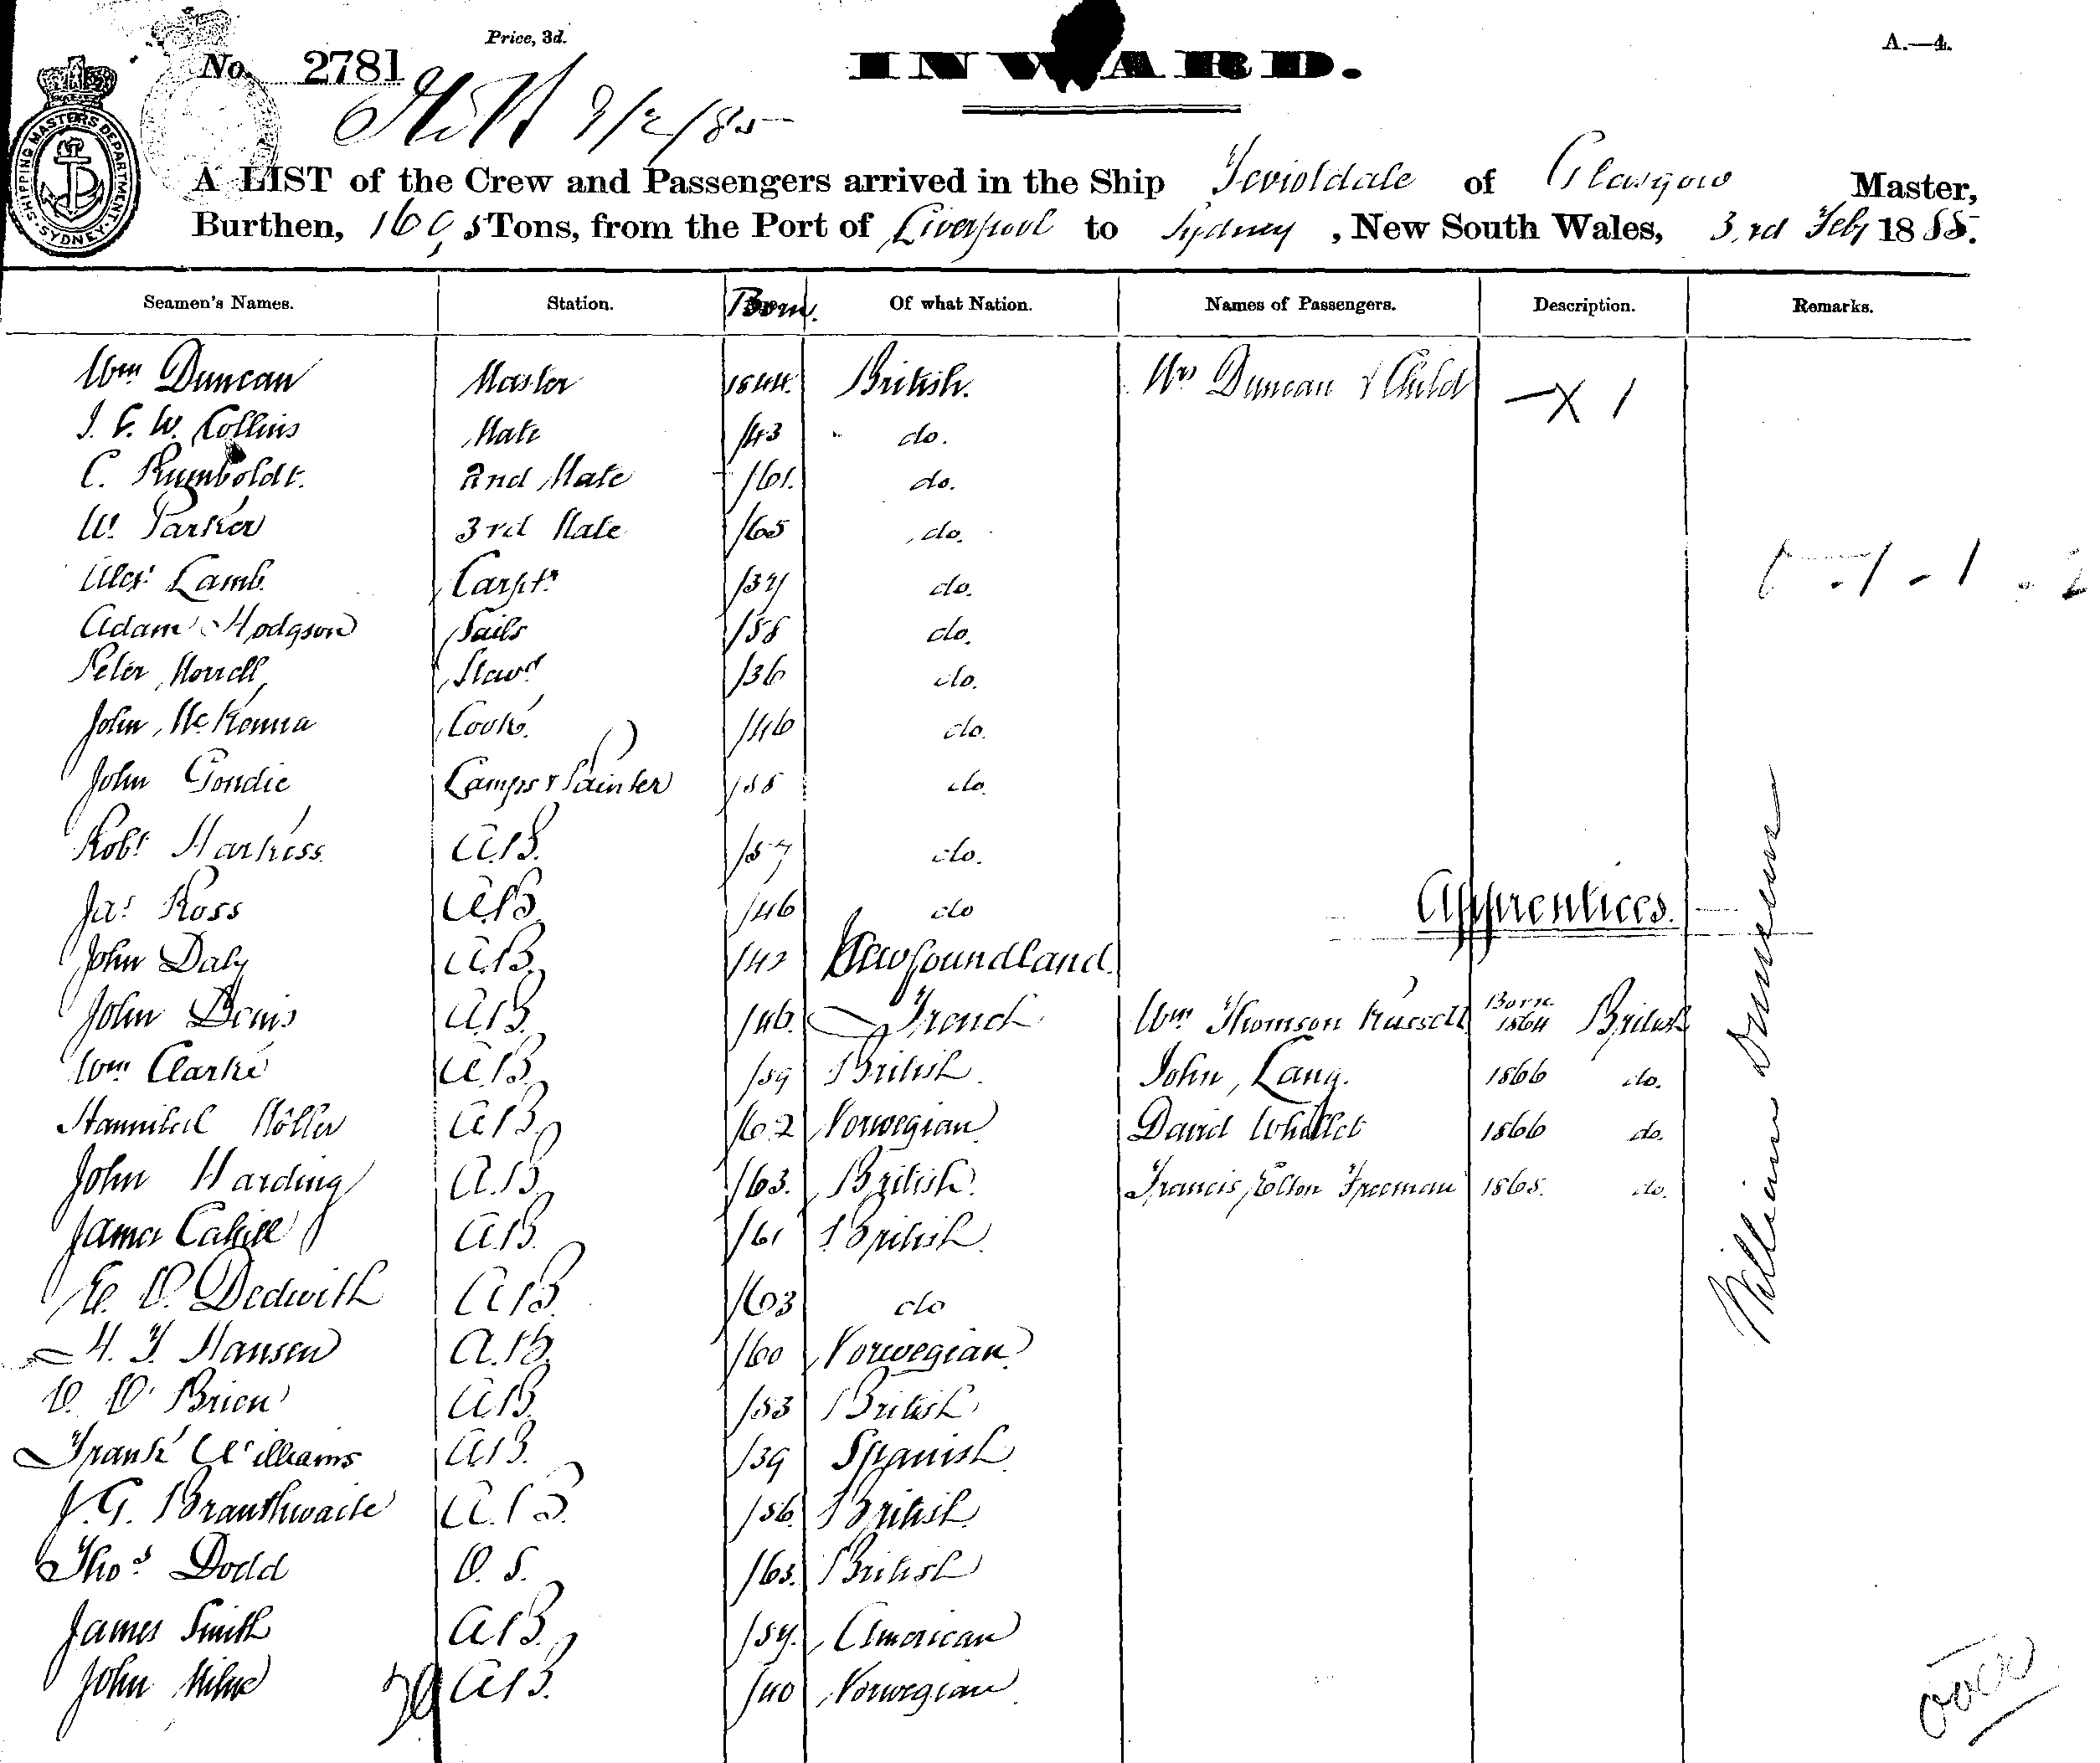 Price, 3d.
A.—4.
No. 2781
INWARD.
9/2/85
SHIPPING MASTERS DEPARTMENT. SYDNEY.
A LIST of the Crew and Passengers arrived in the Ship Teviotdale of Glasgow Master,
Burthen, Tons, from the Port of Liverpool to Sydney, New South Wales, 3rd Feby 1885.
Seamen's Names. Station. Born. Of what Nation. Names of Passengers. Description. Remarks.
Wm Duncan Master 1844. British. Mrs Duncan & Child —X 1
J. W. Collins Mate /43 do.
C. Rumboldt. 2nd Mate /61. do.
W. Parker 3rd Mate /65 do.
Alexr Lamb. Carptr do.
Adam Hodgson Sails /58 do.
Peter Morrell Stewd /36 do.
John McKenna Cook. /46 do.
John Goudie Lamps & Painter do.
Robt Harkess. A.B. /57 do.
Jas Ross A.B. /46 do
Apprentices.
John Daly A.B. /42 Newfoundland.
John Denis A.B. /46. French Wm Thomson Russell Born 1864 British
Wm Clarke A.B. /59 British John Lang. 1866 do.
Hannibal Möller A.B. /62 Norwegian David Whillet 1866 do.
John Harding A.B. /63. British. Francis Elton Freeman 1865. do.
James Cahill A.B. /61 British.
Dedwith A.B. /63 do
H. J. Hansen A.B. /60 Norwegian
O. O'Brien A.B. /53 British
Frank Williams A.B. /39 Spanish
J. G. Branthwaite A.B. /56. British
Thos Dodd O.S. /63. British
James Smith A.B. American
John Milne A.B. /40 Norwegian
William Duncan
over